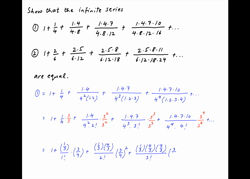 Show that the infinite series
① 1 + 1/4 + 1.4/4.8 + 1.4.7/4.8.12 + 1.4.7.10/4.8.12.16 + ...
② 1 + 2/6 + 2.5/6.12 + 2.5.8/6.12.18 + 2.5.8.11/6.12.18.24 + ...
are equal.
① = 1 + 1/4 + 1.4/4²(1.2) + 1.4.7/4³(1.2.3) + 1.4.7.10/4⁴(1.2.3.4) + ...
= 1 + 1/4 3/3 + 1.4/4² 2! 3²/3² + 1.4.7/4³ 3! 3³/3³ + 1.4.7.10/4⁴ 4! 3⁴/3⁴ + ...
= 1 + (1/3)/1! (3/4) + (1/3)(4/3)/2! (3/4)² + (1/3)(4/3)(7/3)/3! (3